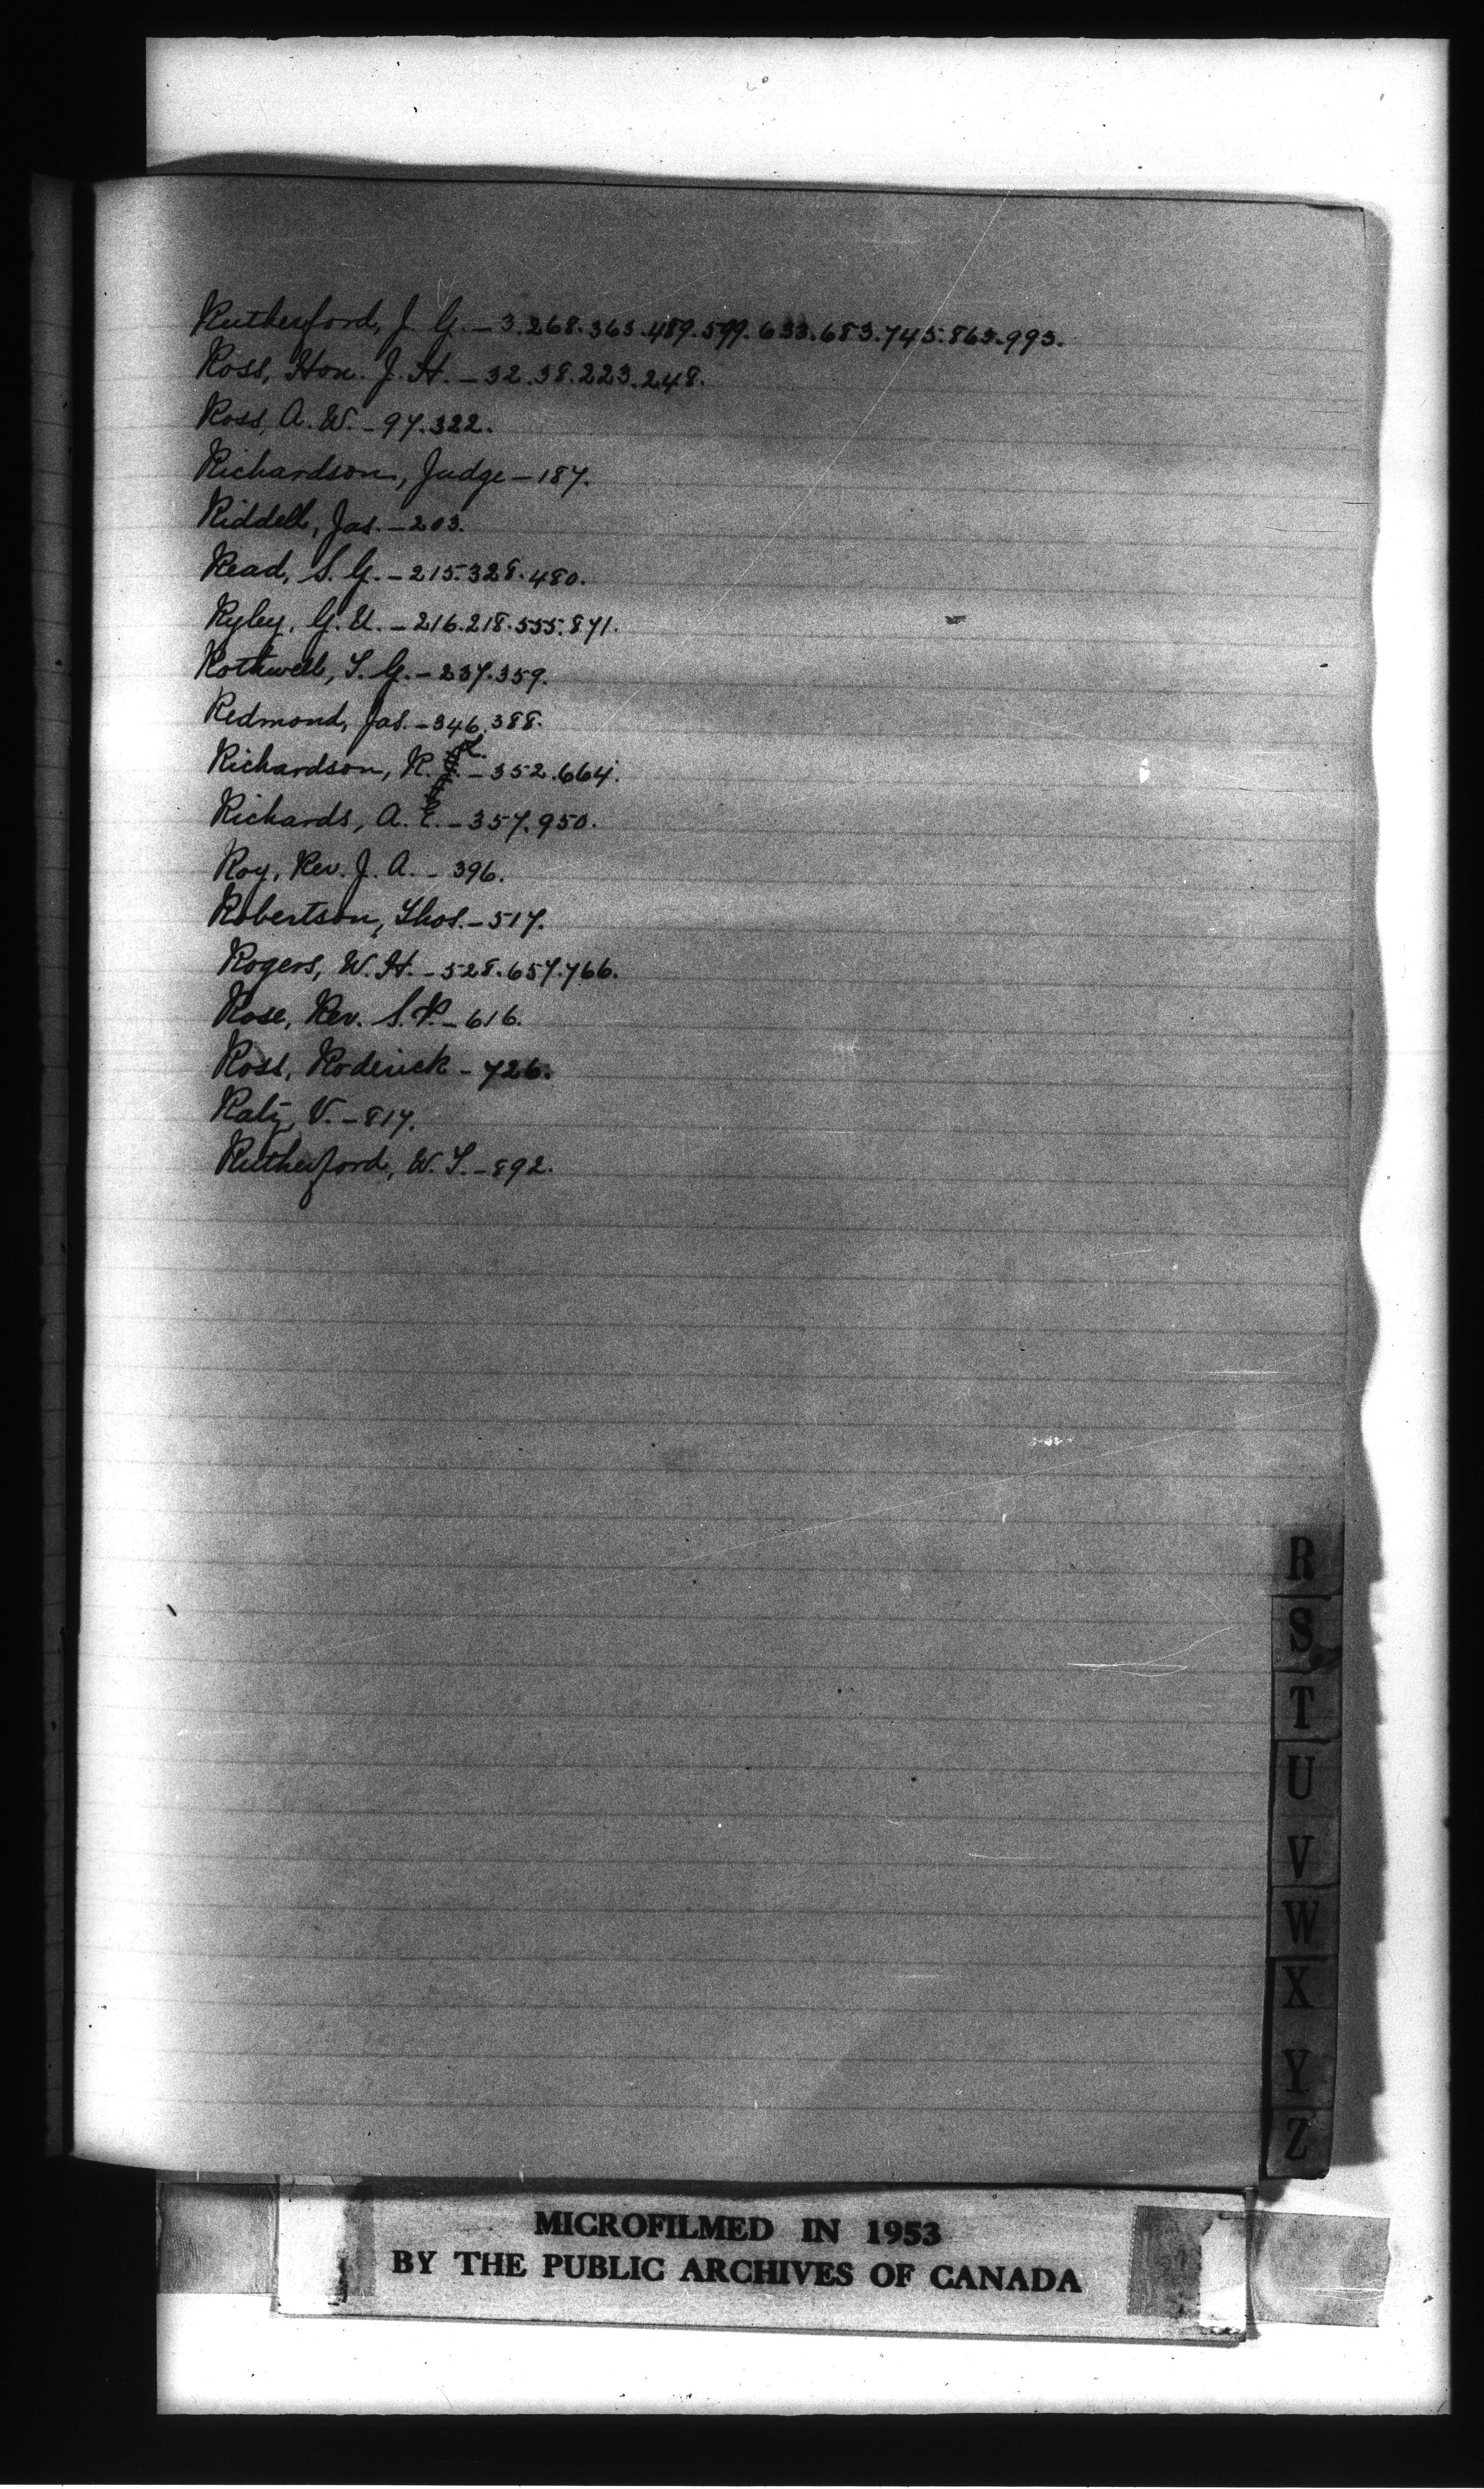 Rutherford, J. G. – 3. 268. 363. 489. 599. 633. 683. 745. 863. 993.
Ross, Hon. J. H. – 32. 38. 223. 248.
Ross, A. W. – 97. 322.
Richardson, Judge – 187.
Riddell, Jas. – 203.
Read, S. G. – 215. 328. 480.
Ryley, G. U. – 216. 218. 555. 871.
Rothwell, T. G. – 237. 359.
Redmond, Jas. – 346. 388.
Richardson, R. L. – 352. 664.
Richards, A. E. – 357. 950.
Roy, Rev. J. A. – 396.
Robertson, Thos. – 517.
Rogers, W. H. – 528. 657. 766.
Rose, Rev. S. P. – 616.
Ross, Roderick – 726.
V. – 817.
Rutherford, W. T. – 892.
R
S
T
U
V
W
X
Y
Z
MICROFILMED IN 1953
BY THE PUBLIC ARCHIVES OF CANADA